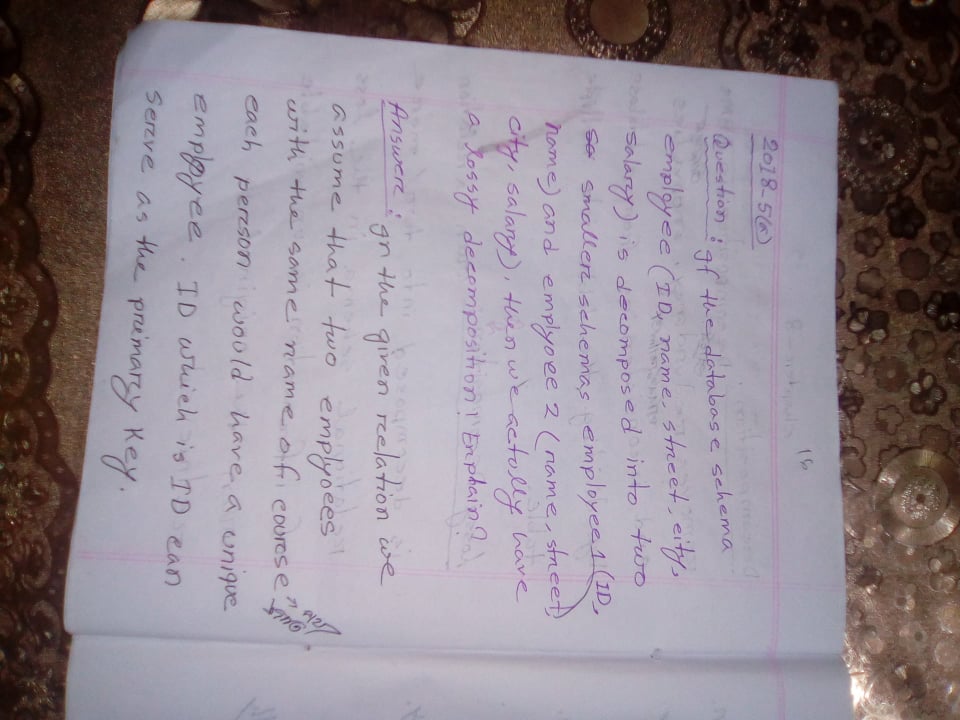 16
2018-5(a)
Question : If the database schema
employee (ID, name, street, city,
salary) is decomposed into two
smaller schemas employee 1 (ID,
name) and emplyoee 2 (name, street
city, salary), then we actolly have
a lossy decomposition! Explain?
Answer : In the given relation we
assume that two emplyoees
with the same name of course
each person would have a unique
employee. ID which is ID can
serve as the primary Key.